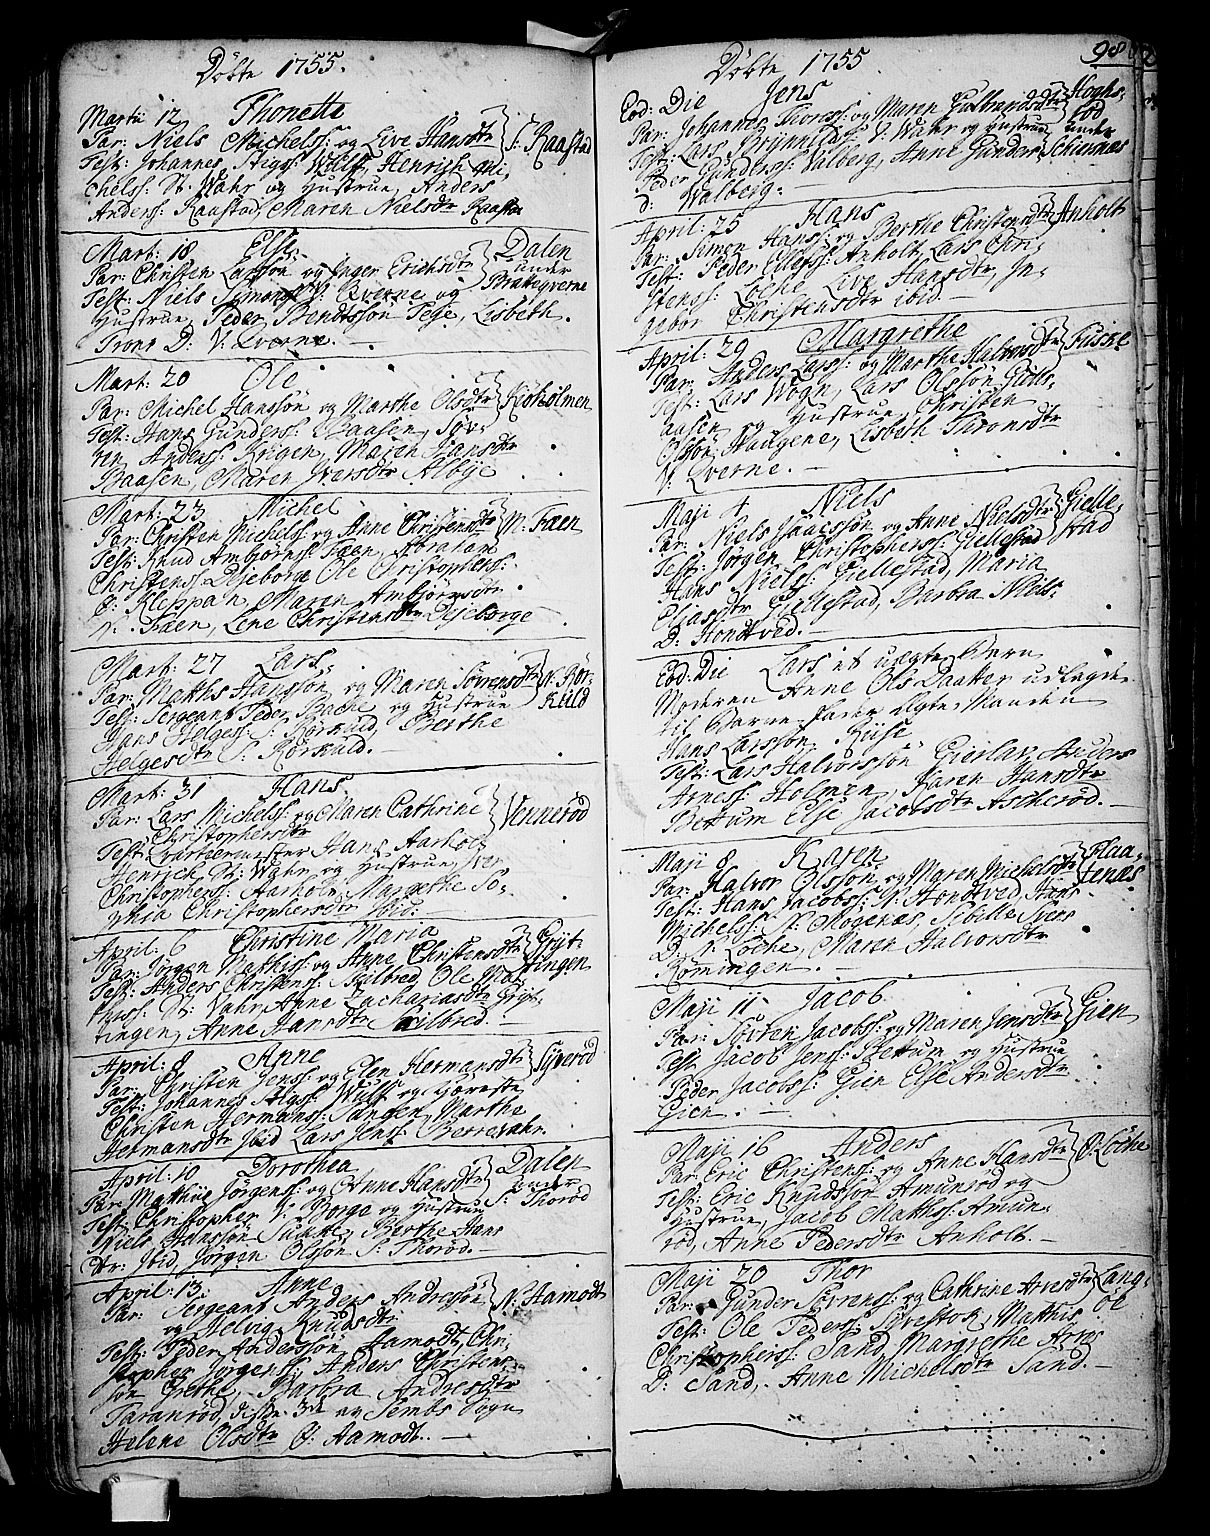 Döbte 1755.
Martii 12 Thonette
Par: Niels Michelss: og Live Hansdtr S: Raastad
Test: Johannes Stigs: Wulf, Henrich Mi-
chelss: N: Wahr og Hustrue, Anders
Anderss: Raastad, Maren Nielsdtr Raastad
Mart: 18 Else
Par: Christen Larssön og Inger Erichsdtr Dalen
under
Test: Niels Simonss: V: Qverne og Brekeqverne
Hustrue, Peder Bendtssön Tege, Lisbeth
Trons D: V: Qverne. —
Mart: 20 Ole
Par: Michel Hanssön og Marthe Olsdtr Kiöholmen
Test: Hans Gunderss: Baasen, Söv-
ren Anderss: Krigen, Maren Hansdtr
Baasen, Maren Iversdtr Albye
Mart: 23 Michel
Par: Christen Michelss: og Anne Christensdtr N: Faen
Test: Knud Ambjörnss: Faen, Abraham
Christenss: Dyeborge Ole Christophers:
Ö: Kleppan, Maren Ambjörnsdtr
N: Faen, Lene Christensdtr Dyeborge
Mart: 27 Lars
Par: Matths Hanssön og Maren Sövrensdtr N: Rör-
Test: Sergeant Peder Bache og Hustrue Kuld
Hans Helgess: S: Rörkuld, Berthe
Helgesdtr S: Rörkuld. —
Mart: 31 Hans
Par: Lars Michelss: og Maren Cathrine Venneröd
Christophersdtr
Test: Qvarteermester Hans Aarholt
Henrich N: Wahr og Hustrue, Iver
Christopherss: Aarholt, Margrethe So-
phia Christophersdtr ibid:
April: 6 Christine Maria
Par: Jörgen Mathiss: og Anne Christensdtr Gryt-
Test: Anders Christenss: Skilbred Ole Mat- tingen
thss: N: Vahr, Anne Zachariasdtr Gryt-
tingen, Anne Hansdtr Skilbred. —
April: 8 Anne
Par: Christen Jenss: og Elen Hermansdtr Syveröd
Test: Johannes Stigss: Wulf og Kiereste
Christen Hermanss: Tangen, Marthe
Hermansdtr Ibid Lars Jenss: Berrevahr.
April: 10 Dorothea
Par: Matthie Jörgenss: og Anne Hansdtr Dalen
under
Test: Christopher V: Borge og Hustrue S: Thoröd
Niels Hanssön Berthe Hans
dtr: Ibid, Jörgen Olssön S: Thoröd. —
April: 13. Anne
Par: Sergeant Anders Andersön N: Aamodt
og Helvig Knudsdtr
Test: Peder Anderssön Aamodt, Chri-
stopher Jörgenss: Anders Christens-
sön Barbra Andersdtr
Taranröd, disse 3de og Sembs Sogn
Helene Olsdtr Ö: Aamodt. —
98
Döbte 1755
Eod: Die Jens
Par: Johannes Thorss: og Maren Gulbrandsdtr Hoghs-
Test: Lars Brynild V: Wahr og Hustrue eod
under
Peder Gunderss: Valberg, Anne Gunders Schiernæs
d: Walberg. —
April: 25 Hans
Par: Simon Hanss: og Berthe Christensdtr Anholt
Test: Peder Ellefss: Anholt, Lars Chri-
stenss: Löche Live Hansdtr, In-
gebor Christensdtr ibid. —
April: 29 Margrethe
Par: Anders Larss: og Marthe Halvorsdtr Fuske
Test: Lars Wögn, Lars Olssön Guls-
aasen og Hustrue, Christen
Olssön Haugene, Lisbeth Thronsdtr
V: Qverne. —
Maji 4 Niels
Par: Niels Isaacssön og Anne Nielsdtr Gielle-
Test: Jörgen Christopherss: Giellestad stad
Hans Nielss: Giellestad, Maria
Eliasdtr Giellestad, Barbra Niels-
D: Hondtved. —
Eod: Die Lars et uægte Barn
Moderen Anne Ols Daatter udlagde
til Barne-Fader Ægte Manden
Hans Larssön Kiise
Test: Lars Halvorssön Gierlar, Anders
Arness: Holmen, Karen Hansdtr
Bettum Else Jacobsdtr Ascheröd. —
Maji 8 Karen
Par: Halvor Olssön og Maren Michelsdtr Flaa-
Test: Hans Jacobss: N: Hondtved, Hans tenæs
Michelss: N: Mogenæs, Sebille Svens
D: N: Löche, Maren Halvorsdtr
Römingen. —
Maji 11. Jacob
Par: Sövren Jacobss: og Maren Jensdtr Gien
Test: Jacob Jenss: Bettum og Hustrue
Peder Jacobss: Gien Else Andersdtr
Gien. —
Maji 16 Anders
Par: Eric Christenss: og Anne Hansdtr Ö: Löche
Test: Eric Knudssön Amunröd og
Hustrue, Jacob Matthss: Amun-
röd, Anne Pedersdtr Anholt. —
Maji 20 Thor
Par: Gunder Sövrenss: og Cathrine Arvesdtr Lang-
Test: Ole Pederss: Syrestok, Mathis öe
Christopherss: Sand, Margrethe Arns
D: Sand, Anne Michelsdtr Sand. —